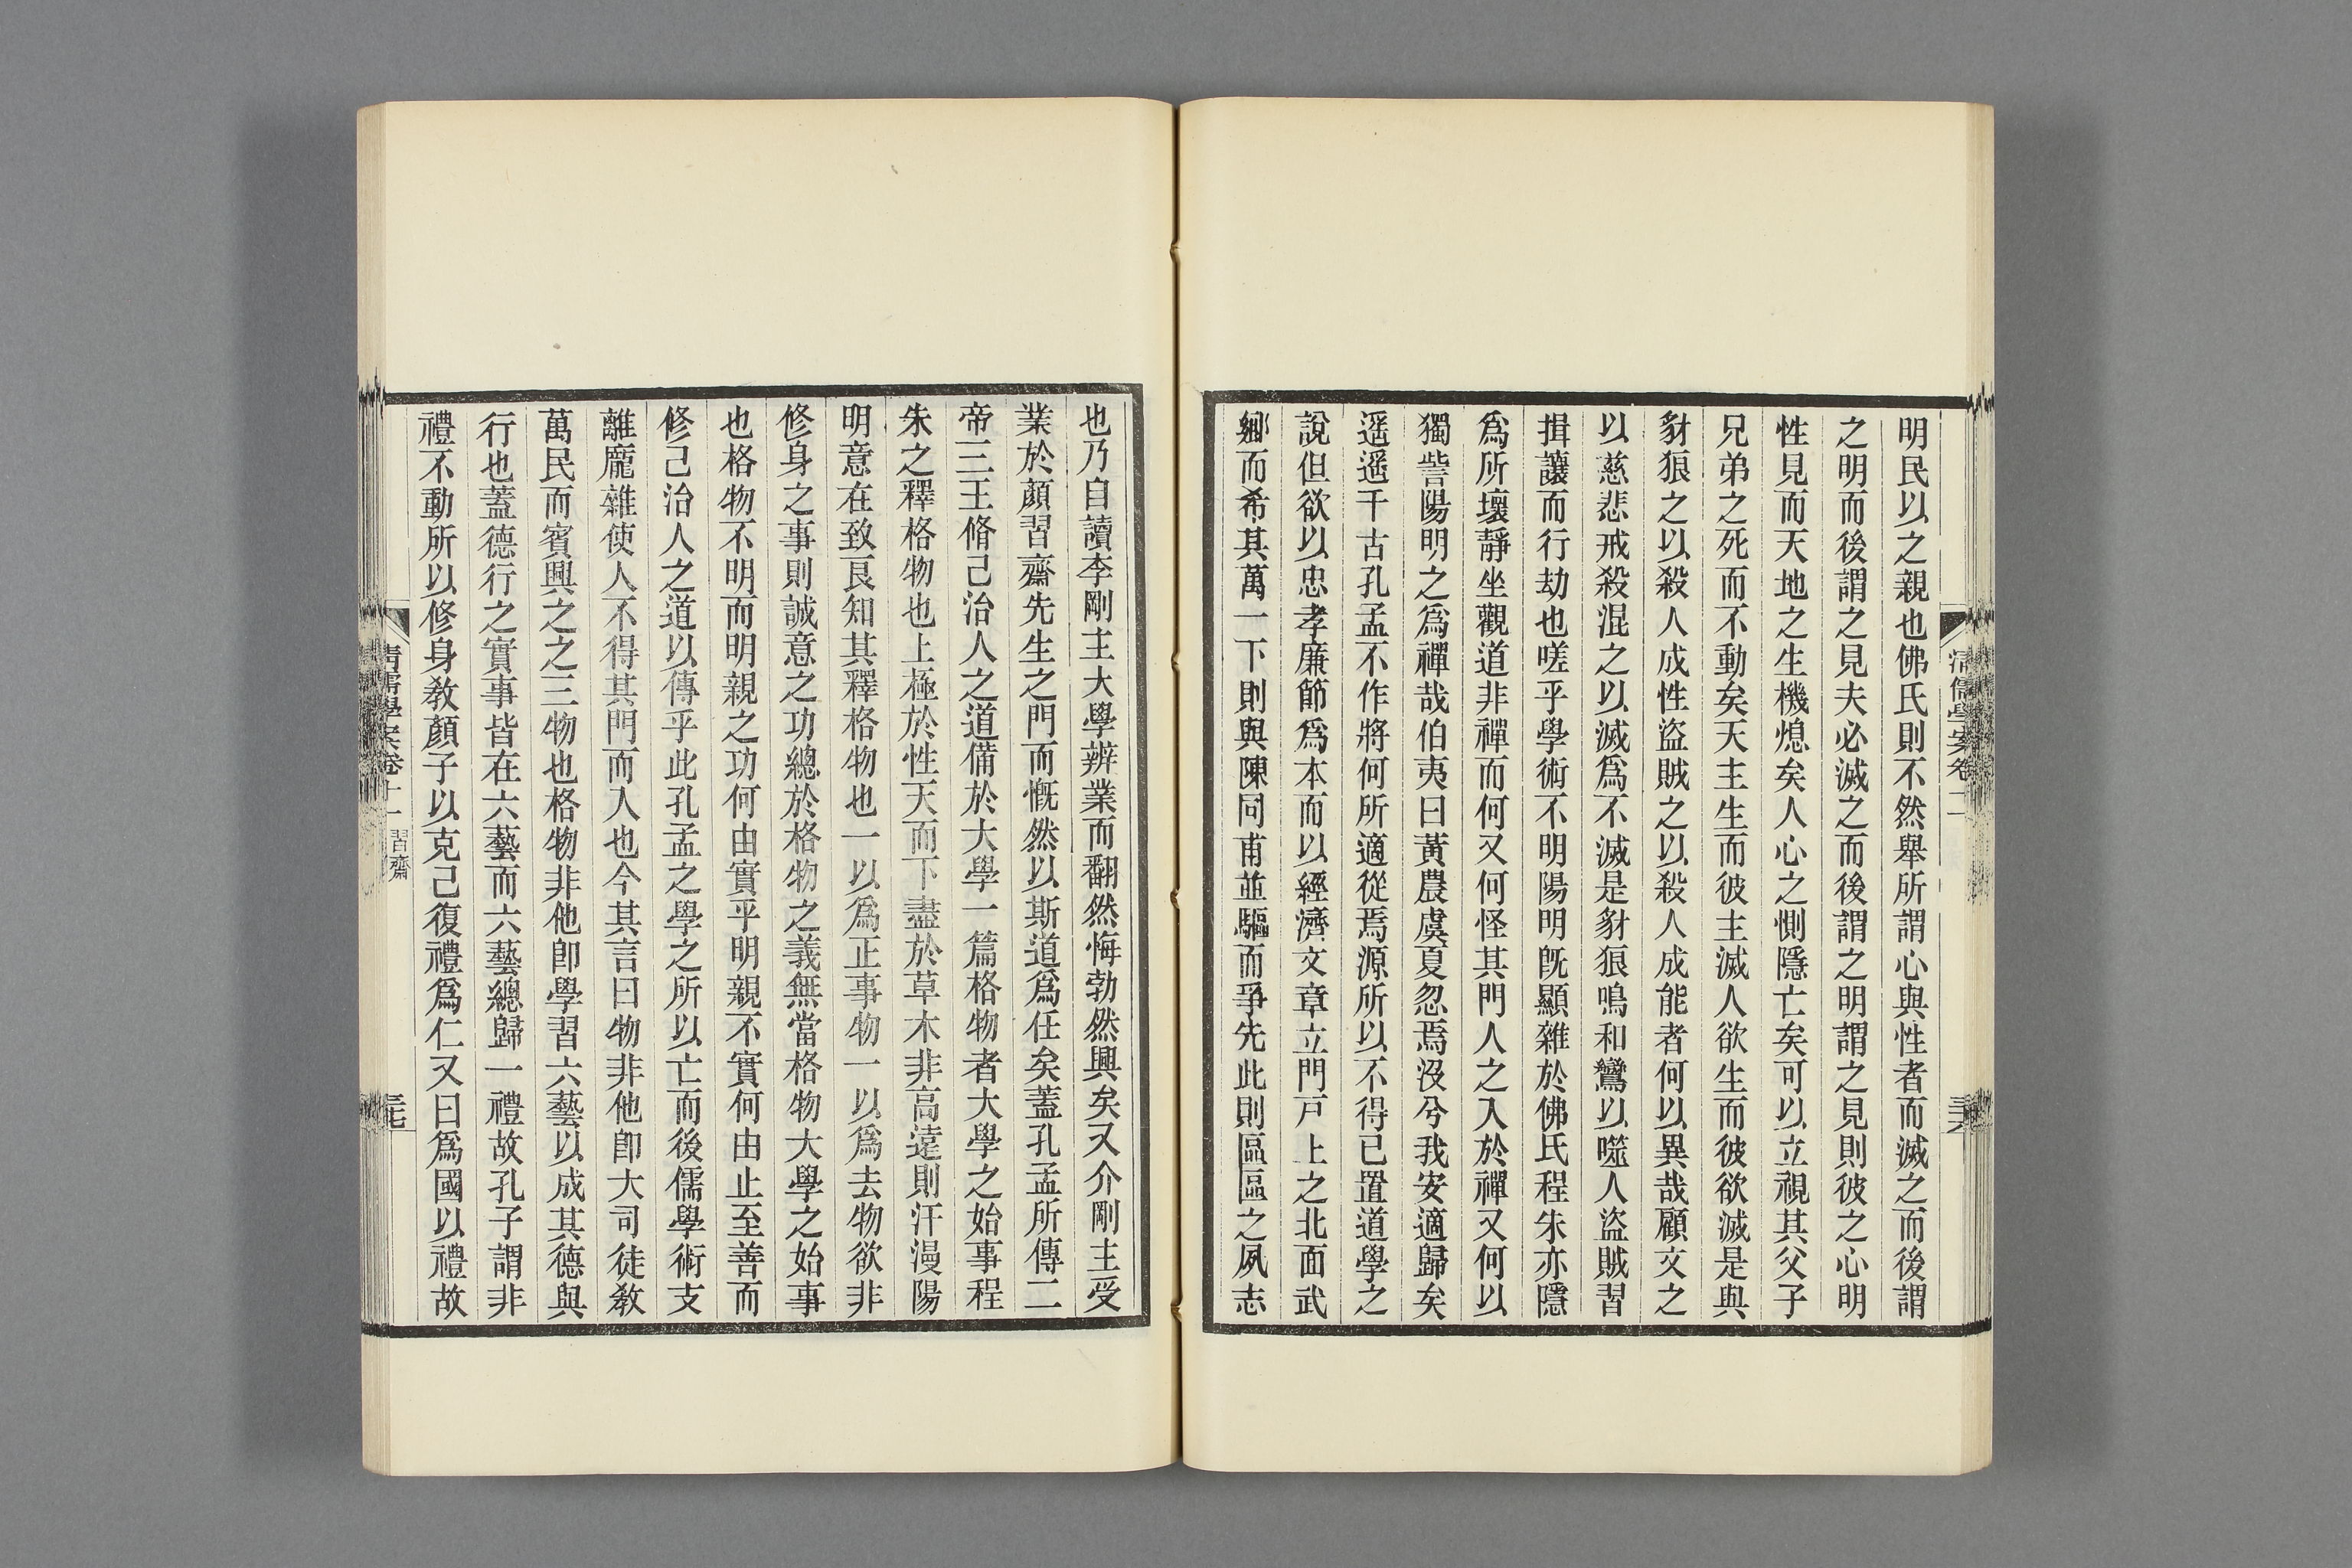 明民以之親也佛氏則不然舉所謂心與性者而滅之而後謂
之明而後謂之見夫必滅之而後謂之明謂之見則彼之心明
性見而天地之生機熄矣人心之惻隱亡矣可以立視其父子
兄弟之死而不動矣天主生而彼主滅人欲生而彼欲滅是與
豺狼之以殺人成性盜賊之以殺人成能者何以異哉顧文之
以慈悲戒殺混之以滅爲不滅是豺狼鳴和鸞以噬人盜賊習
揖讓而行劫也嗟乎學術不明陽明旣顯雜於佛氏程朱亦隱
爲所壞靜坐觀道非禪而何又何怪其門人之入於禪又何以
獨訾陽明之爲禪哉伯夷曰黃農虞夏忽焉沒兮我安適歸矣
遥遥千古孔孟不作將何所適從焉源所以不得已置道學之
說但欲以忠孝廉節爲本而以經濟文章立門戸上之北面武
鄉而希其萬一下則與陳同甫並驅而爭先此則區區之夙志
也乃自讀李剛主大學辨業而翻然悔勃然興矣又介剛主受
業於顏習齋先生之門而慨然以斯道爲任矣蓋孔孟所傳二
帝三王脩己治人之道備於大學一篇格物者大學之始事程
朱之釋格物也上極於性天而下盡於草木非高遠則汗漫陽
明意在致良知其釋格物也一以爲正事物一以爲去物欲非
修身之事則誠意之功總於格物之義無當格物大學之始事
也格物不明而明親之功何由實乎明親不實何由止至善而
修己治人之道以傳乎此孔孟之學之所以亡而後儒學術支
離龐雜使人不得其門而入也今其言曰物非他卽大司徒教
萬民而賓興之之三物也格物非他卽學習六藝以成其德與
行也蓋德行之實事皆在六藝而六藝總歸一禮故孔子謂非
禮不動所以修身教顏子以克己復禮爲仁又曰爲國以禮故
清儒學案卷十一 習齋